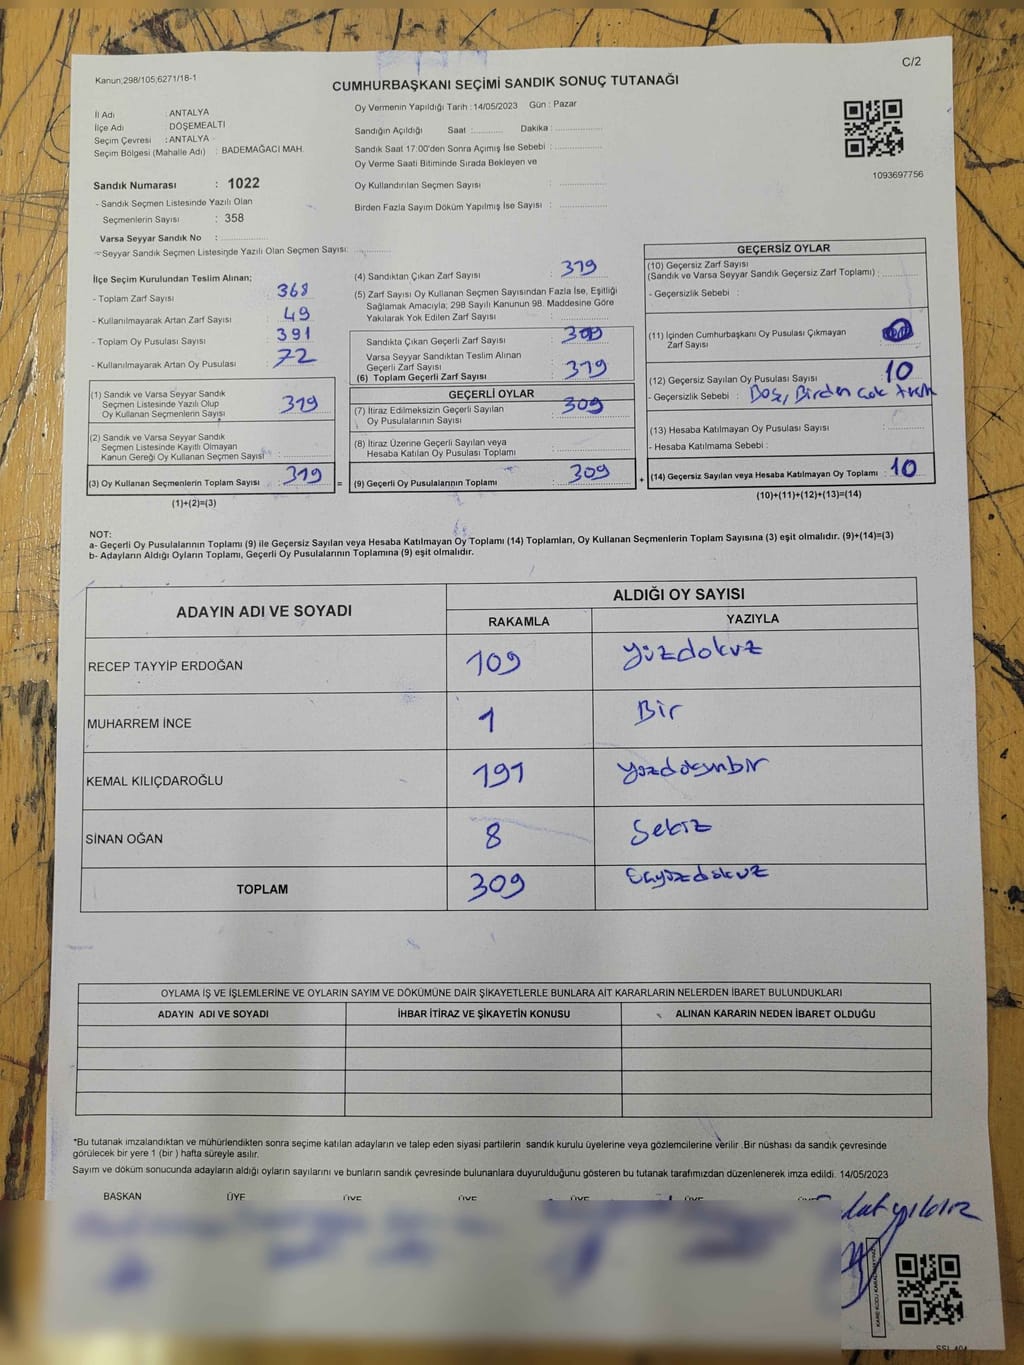 C/2
Kanun;298/105;6271/18-1
CUMHURBAŞKANI SEÇİMİ SANDIK SONUÇ TUTANAĞI
İl Adı : ANTALYA
İlçe Adı : DÖŞEMEALTI
Seçim Çevresi : ANTALYA -
Seçim Bölgesi (Mahalle Adı) : BADEMAĞACI MAH.
Sandık Numarası : 1022
- Sandık Seçmen Listesinde Yazılı Olan
Seçmenlerin Sayısı : 358
Varsa Seyyar Sandık No :
- Seyyar Sandık Seçmen Listesinde Yazılı Olan Seçmen Sayısı:
Oy Vermenin Yapıldığı Tarih : 14/05/2023 Gün : Pazar
Sandığın Açıldığı Saat : Dakika :
Sandık Saat 17:00'den Sonra Açımış İse Sebebi :
Oy Verme Saati Bitiminde Sırada Bekleyen ve
Oy Kullandırılan Seçmen Sayısı :
Birden Fazla Sayım Döküm Yapılmış İse Sayısı :
1093697756
İlçe Seçim Kurulundan Teslim Alınan;
- Toplam Zarf Sayısı 368
- Kullanılmayarak Artan Zarf Sayısı : 49
- Toplam Oy Pusulası Sayısı : 391
- Kullanılmayarak Artan Oy Pusulası : 72
(1) Sandık ve Varsa Seyyar Sandık
Seçmen Listesinde Yazılı Olup
Oy Kullanan Seçmenlerin Sayısı : 319
(2) Sandık ve Varsa Seyyar Sandık
Seçmen Listesinde Kayıtlı Olmayan
Kanun Gereği Oy Kullanan Seçmen Sayısı :
(3) Oy Kullanan Seçmenlerin Toplam Sayısı : 319
(1)+(2)=(3)
=
(4) Sandıktan Çıkan Zarf Sayısı : 319
(5) Zarf Sayısı Oy Kullanan Seçmen Sayısından Fazla İse, Eşitliği
Sağlamak Amacıyla; 298 Sayılı Kanunun 98. Maddesine Göre
Yakılarak Yok Edilen Zarf Sayısı :
Sandıkta Çıkan Geçerli Zarf Sayısı : 309
Varsa Seyyar Sandıktan Teslim Alınan
Geçerli Zarf Sayısı :
(6) Toplam Geçerli Zarf Sayısı : 319
GEÇERLİ OYLAR
(7) İtiraz Edilmeksizin Geçerli Sayılan
Oy Pusulalarının Sayısı : 309
(8) İtiraz Üzerine Geçerli Sayılan veya
Hesaba Katılan Oy Pusulası Toplamı :
(9) Geçerli Oy Pusulalarının Toplamı : 309
+
GEÇERSİZ OYLAR
(10) Geçersiz Zarf Sayısı
(Sandık ve Varsa Seyyar Sandık Geçersiz Zarf Toplamı) :
- Geçersizlik Sebebi :
(11) İçinden Cumhurbaşkanı Oy Pusulası Çıkmayan
Zarf Sayısı :
(12) Geçersiz Sayılan Oy Pusulası Sayısı : 10
- Geçersizlik Sebebi : Boş, Birden çok
(13) Hesaba Katılmayan Oy Pusulası Sayısı :
- Hesaba Katılmama Sebebi :
(14) Geçersiz Sayılan veya Hesaba Katılmayan Oy Toplamı : 10
(10)+(11)+(12)+(13)=(14)
NOT:
a- Geçerli Oy Pusulalarının Toplamı (9) ile Geçersiz Sayılan veya Hesaba Katılmayan Oy Toplamı (14) Toplamları, Oy Kullanan Seçmenlerin Toplam Sayısına (3) eşit olmalıdır. (9)+(14)=(3)
b- Adayların Aldığı Oyların Toplamı, Geçerli Oy Pusulalarının Toplamına (9) eşit olmalıdır.
ADAYIN ADI VE SOYADI ALDIĞI OY SAYISI
RAKAMLA YAZIYLA
RECEP TAYYİP ERDOĞAN 109 yüzdokuz
MUHARREM İNCE 1 Bir
KEMAL KILIÇDAROĞLU 191 yüzdoksanbir
SİNAN OĞAN 8 Sekiz
TOPLAM 309 üçyüzdokuz
OYLAMA İŞ VE İŞLEMLERİNE VE OYLARIN SAYIM VE DÖKÜMÜNE DAİR ŞİKAYETLERLE BUNLARA AİT KARARLARIN NELERDEN İBARET BULUNDUKLARI
ADAYIN ADI VE SOYADI İHBAR İTİRAZ VE ŞİKAYETİN KONUSU ALINAN KARARIN NEDEN İBARET OLDUĞU
*Bu tutanak imzalandıktan ve mühürlendikten sonra seçime katılan adayların ve talep eden siyasi partilerin sandık kurulu üyelerine veya gözlemcilerine verilir .Bir nüshası da sandık çevresinde
görülecek bir yere 1 (bir ) hafta süreyle asılır.
Sayım ve döküm sonucunda adayların aldığı oyların sayılarını ve bunların sandık çevresinde bulunanlara duyurulduğunu gösteren bu tutanak tarafımızdan düzenlenerek imza edildi. 14/05/2023
BAŞKAN ÜYE ÜYE ÜYE ÜYE ÜYE
yıldız